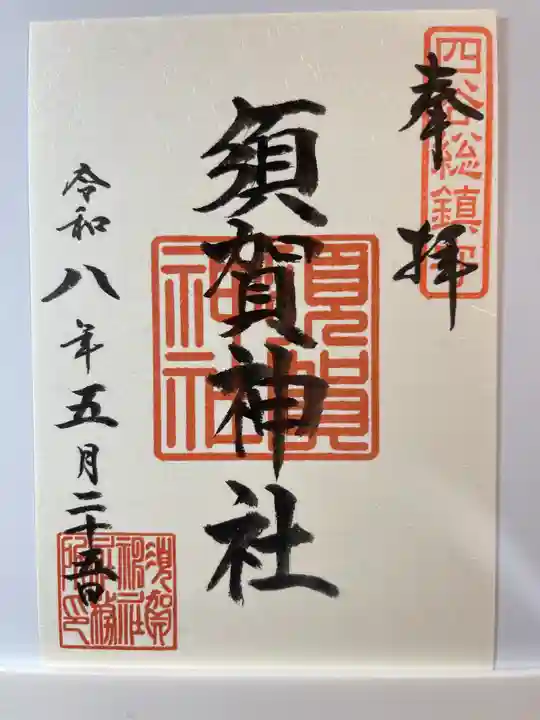 四谷総鎮守
奉拝
須賀神社
須賀神社
令和八年五月二十五日
須賀神社社務所印